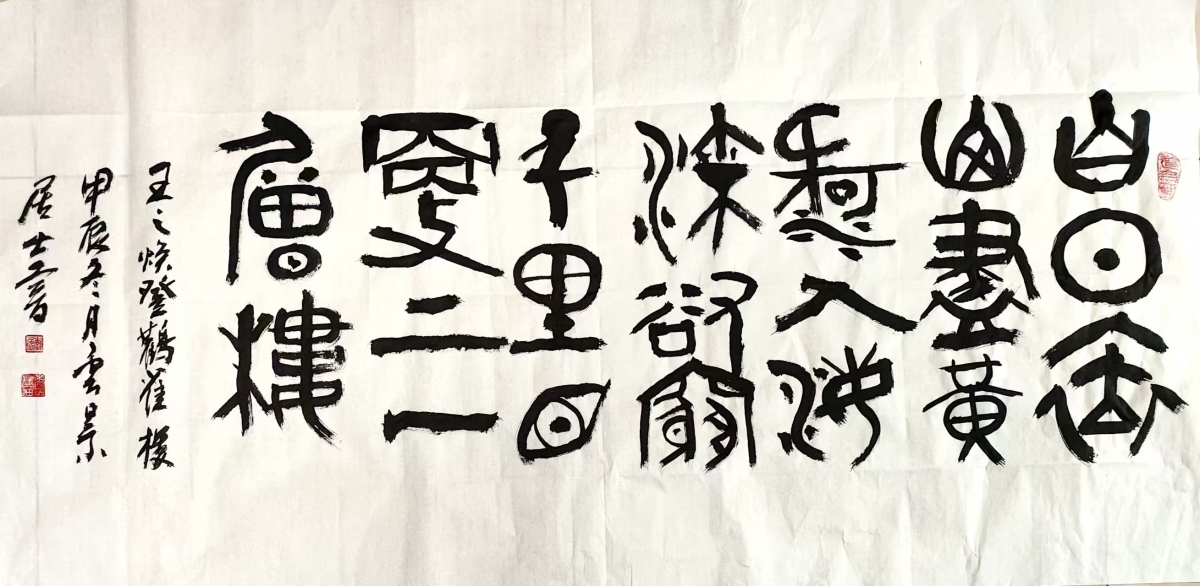 白日依
山盡黃
河入海
流欲窮
千里目
更上一
層樓
王之焕登鸛雀樓
甲辰冬月雲景
居士